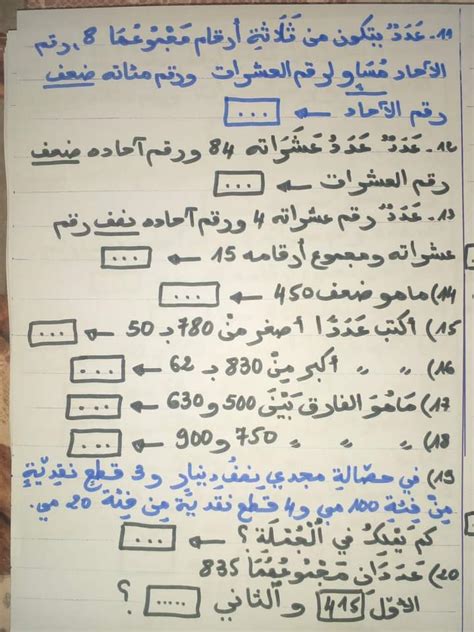 11. عَدَدٌ يتكون من ثَلَاثَةِ أرقام مَجْمُوعُهَا 8, رقم
الآحاد مُسَاوٍ لرقم العشرات ورقم مئاته ضعف
رقم الآحاد ← ...
12. عَدَدٌ عَدَدُ عَشَرَاته 84 ورقم آحاده ضعف
رقم العشرات ← ...
13. عَدَدٌ رقم عشراته 4 ورقم آحاده نصف رقم
عشراته ومجموع أرقامه 15 ← ...
14) ماهو ضعف 450 ← ...
15) أكتب عَدَدًا أصغر مِنْ 780 بـ 50 ← ...
16) " " أكبر مِنْ 830 بـ 62 ← ...
17) مَاهُوَ الفارق بَيْنَ 500 و 630 ← ...
18) " " " 750 و 900 ← ...
19) في حصّالةِ مجدي نِصْفُ دينار و 3 قطع نقديّةٍ
مِنْ فِئة 100 مي و 4 قطع نقديّة مِن فِئة 20 مي.
كم يَمْلِكُ في الْجُمْلَةِ؟ ← ...
20) عَدَدَانِ مَجْمُوعُهُمَا 835
الأوّل 415 و الثاني ..... ؟